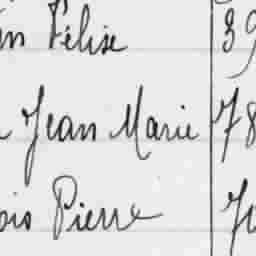 Félise 39
Jean Marie 78
Pierre